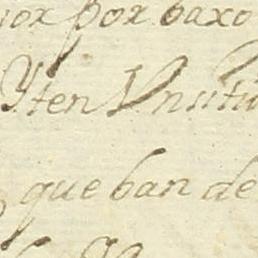 por baxo
Yten Vn siti
que ban de